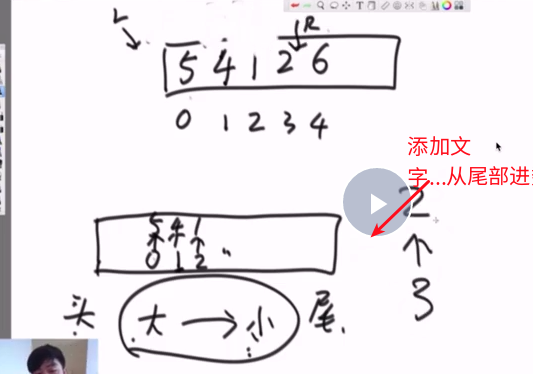 L R
5 4 1 2 6
0 1 2 3 4
添加文
字...从尾部进
2
5 4 1
0 1 2
3
头 大 → 小 尾